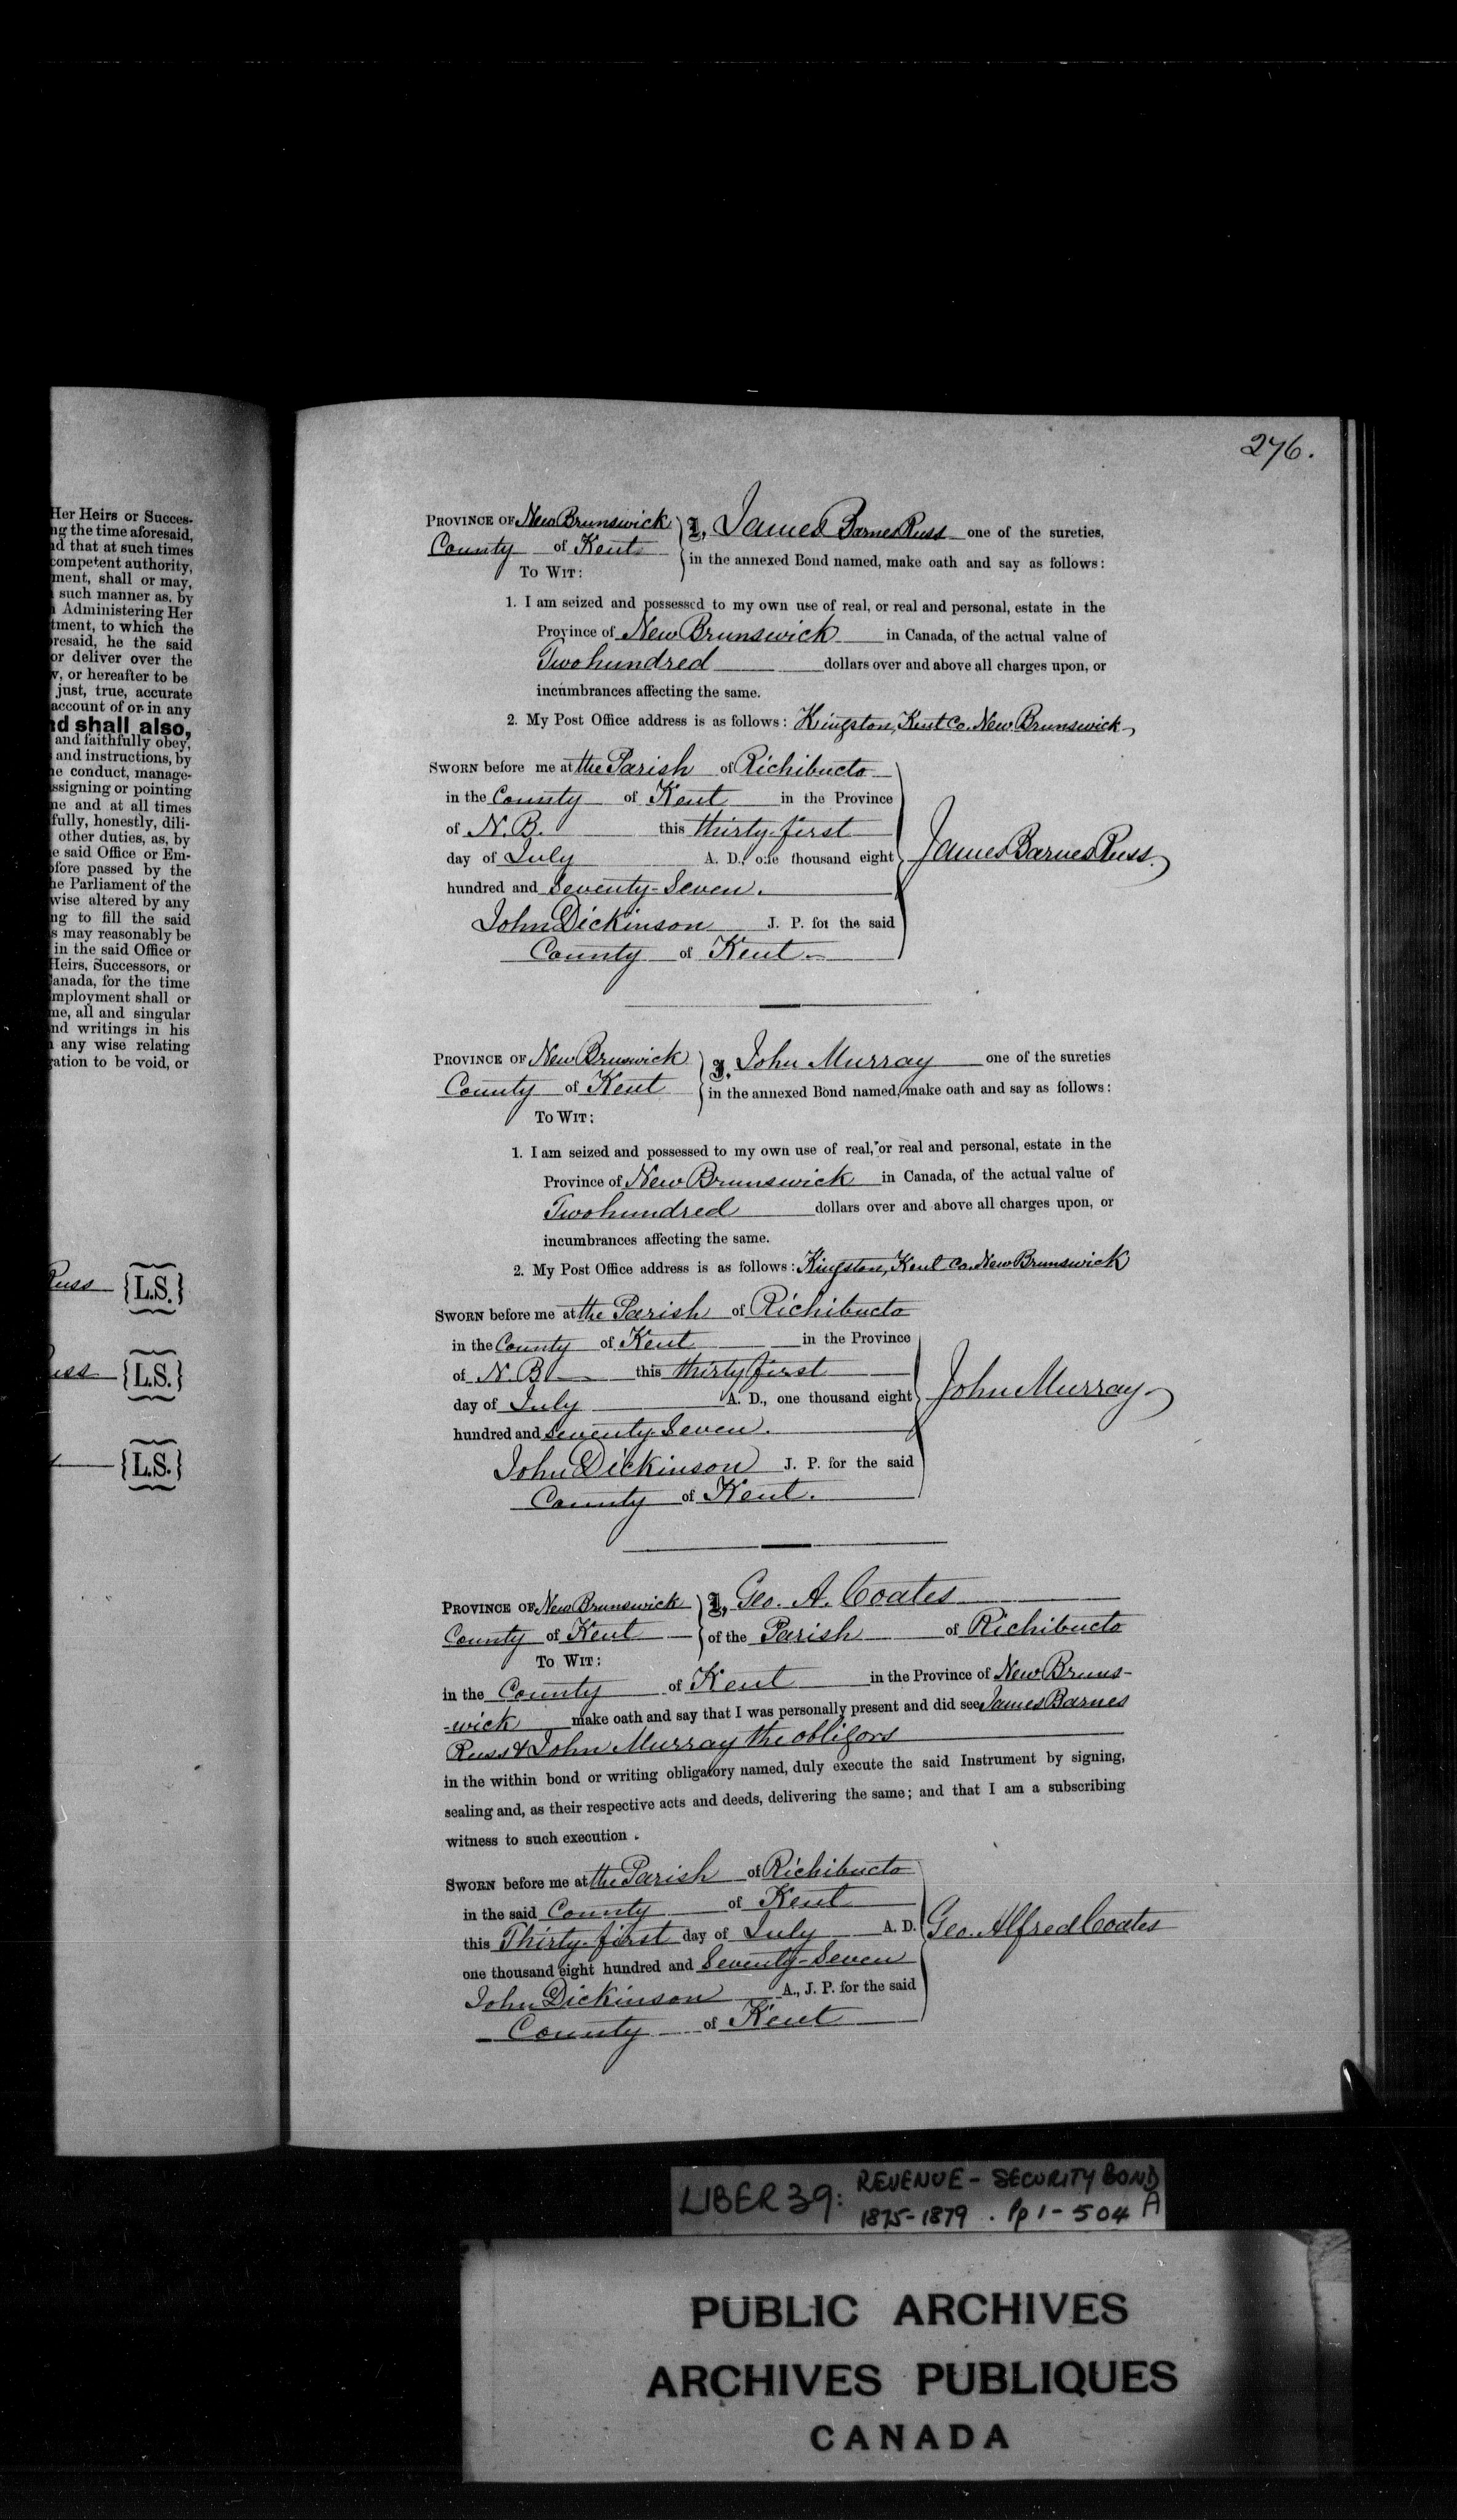 Her Heirs or Succes-
ng the time aforesaid,
nd that at such times
competent authority,
ment, shall or may,
such manner as, by
Administering Her
tment, to which the
resaid, he the said
or deliver over the
v, or hereafter to be
just, true, accurate
account of or in any
nd shall also,
and faithfully obey,
and instructions, by
e conduct, manage-
ssigning or pointing
ne and at all times
fully, honestly, dili-
other duties, as, by
e said Office or Em-
fore passed by the
he Parliament of the
wise altered by any
ng to fill the said
s may reasonably be
in the said Office or
Heirs, Successors, or
anada, for the time
mployment shall or
me, all and singular
nd writings in his
any wise relating
ation to be void, or
Russ {L.S.}
uss {L.S.}
{L.S.}
276.
PROVINCE OF New Brunswick } I, James Barnes Russ one of the sureties,
County of Kent } in the annexed Bond named, make oath and say as follows:
TO WIT:
1. I am seized and possessed to my own use of real, or real and personal, estate in the
Province of New Brunswick in Canada, of the actual value of
Two hundred dollars over and above all charges upon, or
incumbrances affecting the same.
2. My Post Office address is as follows: Kingston, Kent Co. New Brunswick
SWORN before me at the Parish of Richibucto
in the County of Kent in the Province
of N. B. this thirty-first
day of July A. D., one thousand eight
hundred and Seventy-Seven.
James Barnes Russ.
John Dickinson J. P. for the said
County of Kent.
PROVINCE OF New Brunswick } I, John Murray one of the sureties
County of Kent } in the annexed Bond named, make oath and say as follows:
TO WIT:
1. I am seized and possessed to my own use of real, or real and personal, estate in the
Province of New Brunswick in Canada, of the actual value of
Two hundred dollars over and above all charges upon, or
incumbrances affecting the same.
2. My Post Office address is as follows: Kingston, Kent Co. New Brunswick
SWORN before me at the Parish of Richibucto
in the County of Kent in the Province
of N. B. this thirty first
day of July A. D., one thousand eight
hundred and seventy-Seven.
John Murray
John Dickinson J. P. for the said
County of Kent.
PROVINCE OF New Brunswick } I, Geo. A. Coates
County of Kent } of the Parish of Richibucto
TO WIT:
in the County of Kent in the Province of New Bruns-
-wick make oath and say that I was personally present and did see James Barnes
Russ & John Murray the obligors
in the within bond or writing obligatory named, duly execute the said Instrument by signing,
sealing and, as their respective acts and deeds, delivering the same; and that I am a subscribing
witness to such execution.
SWORN before me at the Parish of Richibucto
in the said County of Kent
this Thirty-first day of July A. D.
one thousand eight hundred and Seventy-Seven
Geo. Alfred Coates
John Dickinson A., J. P. for the said
County of Kent
LIBER 39: REVENUE - SECURITY BOND
1875-1879. Pp 1-504 A
PUBLIC ARCHIVES
ARCHIVES PUBLIQUES
CANADA